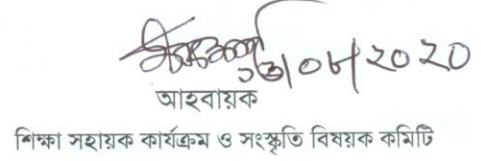 ০৮/২০২০
আহবায়ক
শিক্ষা সহায়ক কার্যক্রম ও সংস্কৃতি বিষয়ক কমিটি